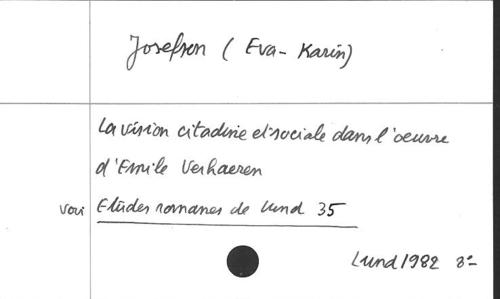 Josefson ( Eva - Karin)
La vision citadine et sociale dans l'oeuvre
d'Emile Verhaeren
voir Etudes romanes de Lund 35
Lund 1982 8°